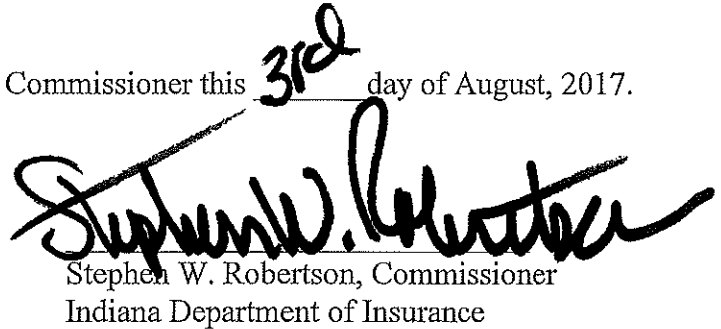 Commissioner this 3rd day of August, 2017.
Stephen W. Robertson
Stephen W. Robertson, Commissioner
Indiana Department of Insurance